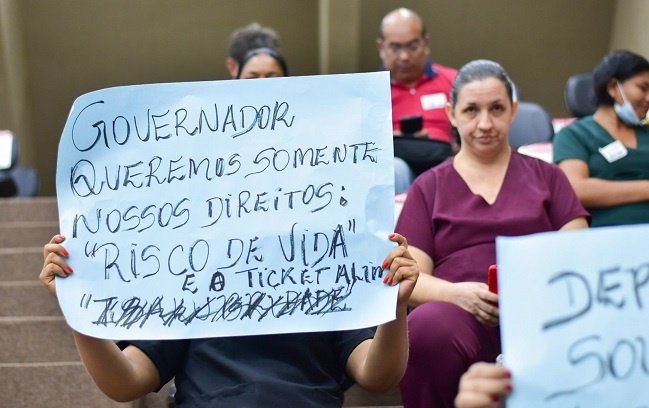 GOVERNADOR
QUEREMOS SOMENTE
NOSSOS DIREITOS:
"RISCO DE VIDA"
E O TICKET ALIM
DEP
SOU